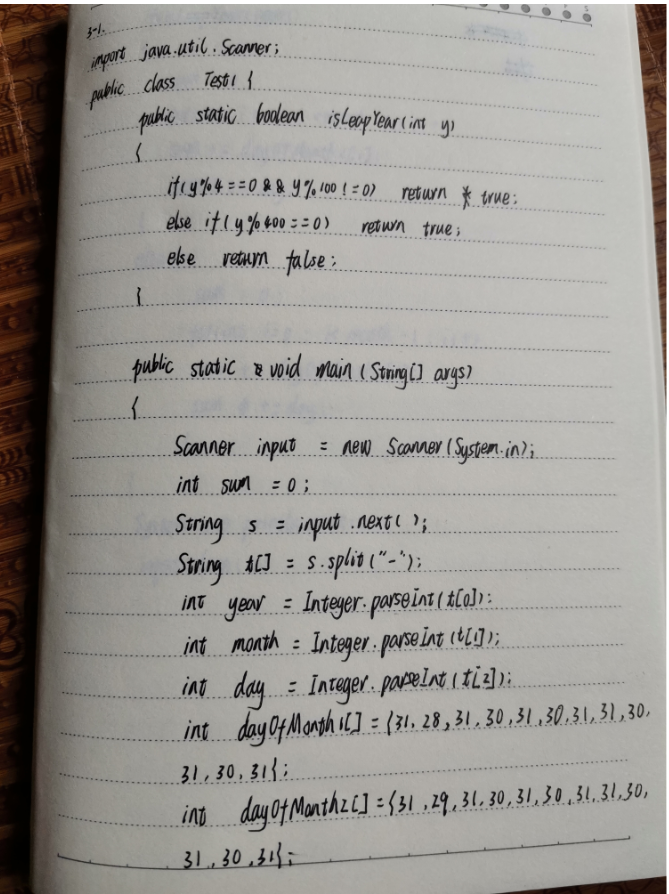 3-1.
import java.util.Scanner;
public class Test1 {
public static boolean isLeapYear(int y)
{
if(y%4==0 && y%100!=0) return true;
else if(y%400==0) return true;
else return false;
}
public static void main (String[] args)
{
Scanner input = new Scanner(System.in);
int sum = 0;
String s = input.next();
String t[] = s.split("-");
int year = Integer.parseInt(t[0]);
int month = Integer.parseInt(t[1]);
int day = Integer.parseInt(t[2]);
int dayOfMonth1[] = {31, 28, 31, 30, 31, 30, 31, 31, 30,
31, 30, 31};
int dayOfMonth2[] = {31, 29, 31, 30, 31, 30, 31, 31, 30,
31, 30, 31};